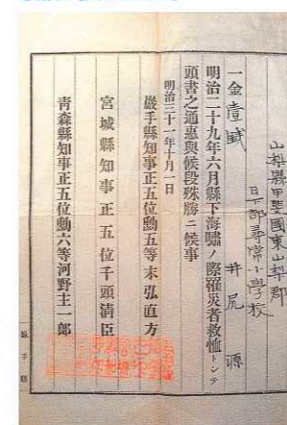 山梨縣甲斐國東山梨郡
日下部尋常小學校
一金壹錢 井尻 源
明治二十九年六月縣下海嘯ノ際罹災者救恤トシテ
頭書之通惠與候段殊勝ニ候事
明治三十一年十月一日
巖手縣知事正五位勳五等末弘直方
宮城縣知事正五位千頭清臣
青森縣知事正五位勳六等河野主一郎